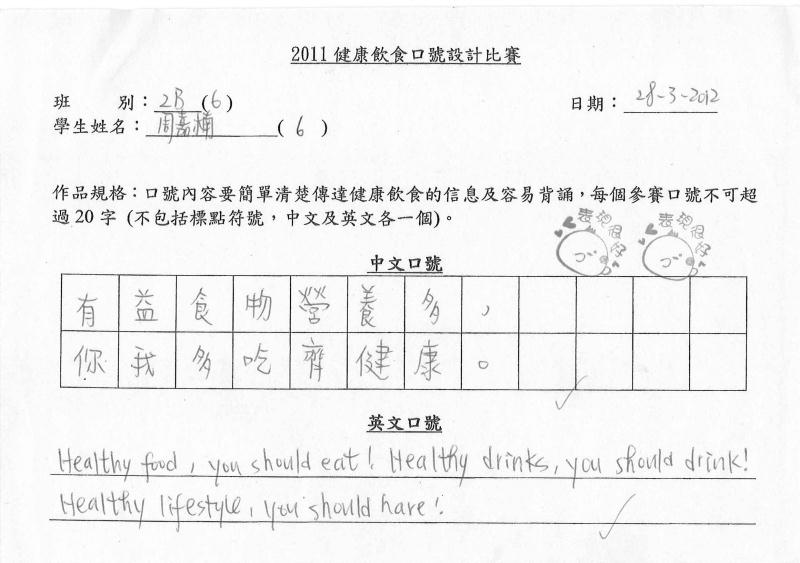 2011 健康飲食口號設計比賽
班 別：2B (6)
日期：28-3-2012
學生姓名：周嘉楠 ( 6 )
作品規格：口號內容要簡單清楚傳達健康飲食的信息及容易背誦，每個參賽口號不可超
過 20 字 (不包括標點符號，中文及英文各一個)。
表現很好 表現很好
中文口號
有益食物營養多，
你我多吃齊健康。
英文口號
Healthy food, you should eat! Healthy drinks, you should drink!
Healthy lifestyle, you should have!